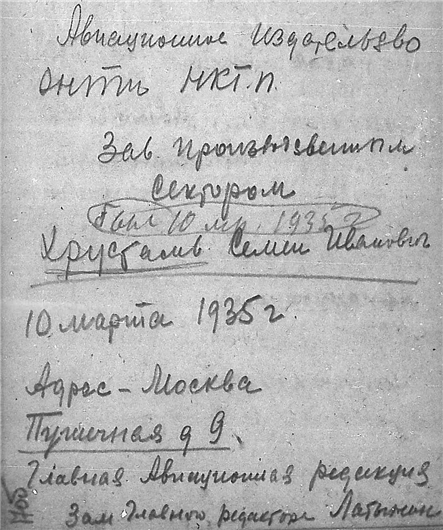 Авиационное Издательсво
ОНТИ НКТ.П.
Зав. Производственным
Сектором
был 10 мр. 1935 г
Хрусталь Семен Иванович
10 марта 1935 г.
Адрес - Москва
Пушечная д 9.
Главная Авиационная редакция
Зам Главного редактора